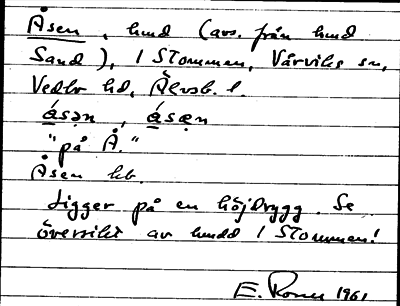 Åsen, hmd (avs. från hmd
Sand), I Stommen, Vårviks sn,
Vedbo hd, Älvsb. l.
åsən, åsæn
"på Å."
Åsen hb.
Ligger på en höjdrygg. Se
översikt av hmdd I Stommen!
E. 1961